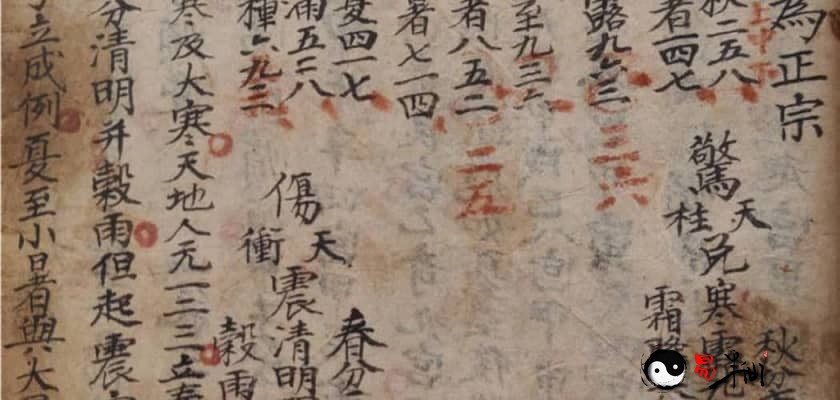 為正宗
上中下
秋二五八
者一四七
驚
天
柱
兌寒露九
秋分
霜降
露九六三
三六
至九三六
者八五二
二五
暑七一四
夏四一七
滿五二八
種六九三
傷
天
衝
震清明
春分
穀雨
寒及大寒天地人元一二三立春
分清明并穀雨但起震
立成例夏至小暑與大
易